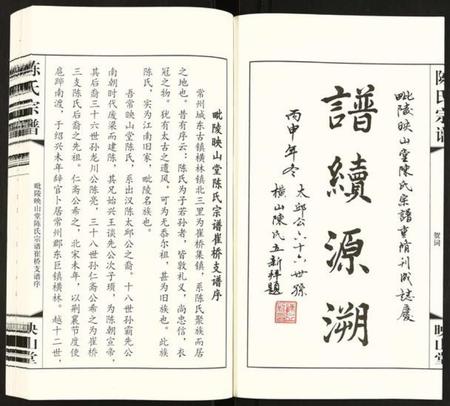 陈氏宗谱
贺词
映山堂
毗陵映山堂陳氏宗譜重脩刊成誌慶
譜續源溯
丙申年冬
太邱公六十六世孫
橫山陳氏五新拜題
毗陵映山堂陈氏宗谱崔桥支谱序
常州城东古镇横林镇北三里为崔桥集镇，系陈氏聚族而居
之地也。昔有序云：陈氏为子若孙者，皆敦礼义，尚忠信，衣
冠之物。犹有太古之遗风，可为无忝尔祖，甚为旧族也。此族
陈氏，实为江南旧家，毗陵名族也。
吾常映山堂陈氏，系出汉陈太邱公之裔。十八世孙霸先公
南朝时代废梁而建陈，其兄始兴王谈先公次子顼，为陈朝宣帝，
其后裔三十六世孙龙川公陈亮，三十八世孙仁斋公希之为崔桥
三支陈氏后裔之先祖。仁斋公希之，北宋末年，以荆襄节度使
扈跸南渡，于绍兴未年辞官卜居常州郡东巨镇横林。越十二世，
陈氏宗谱
毗陵映山堂陈氏宗谱崔桥支谱序
映山堂